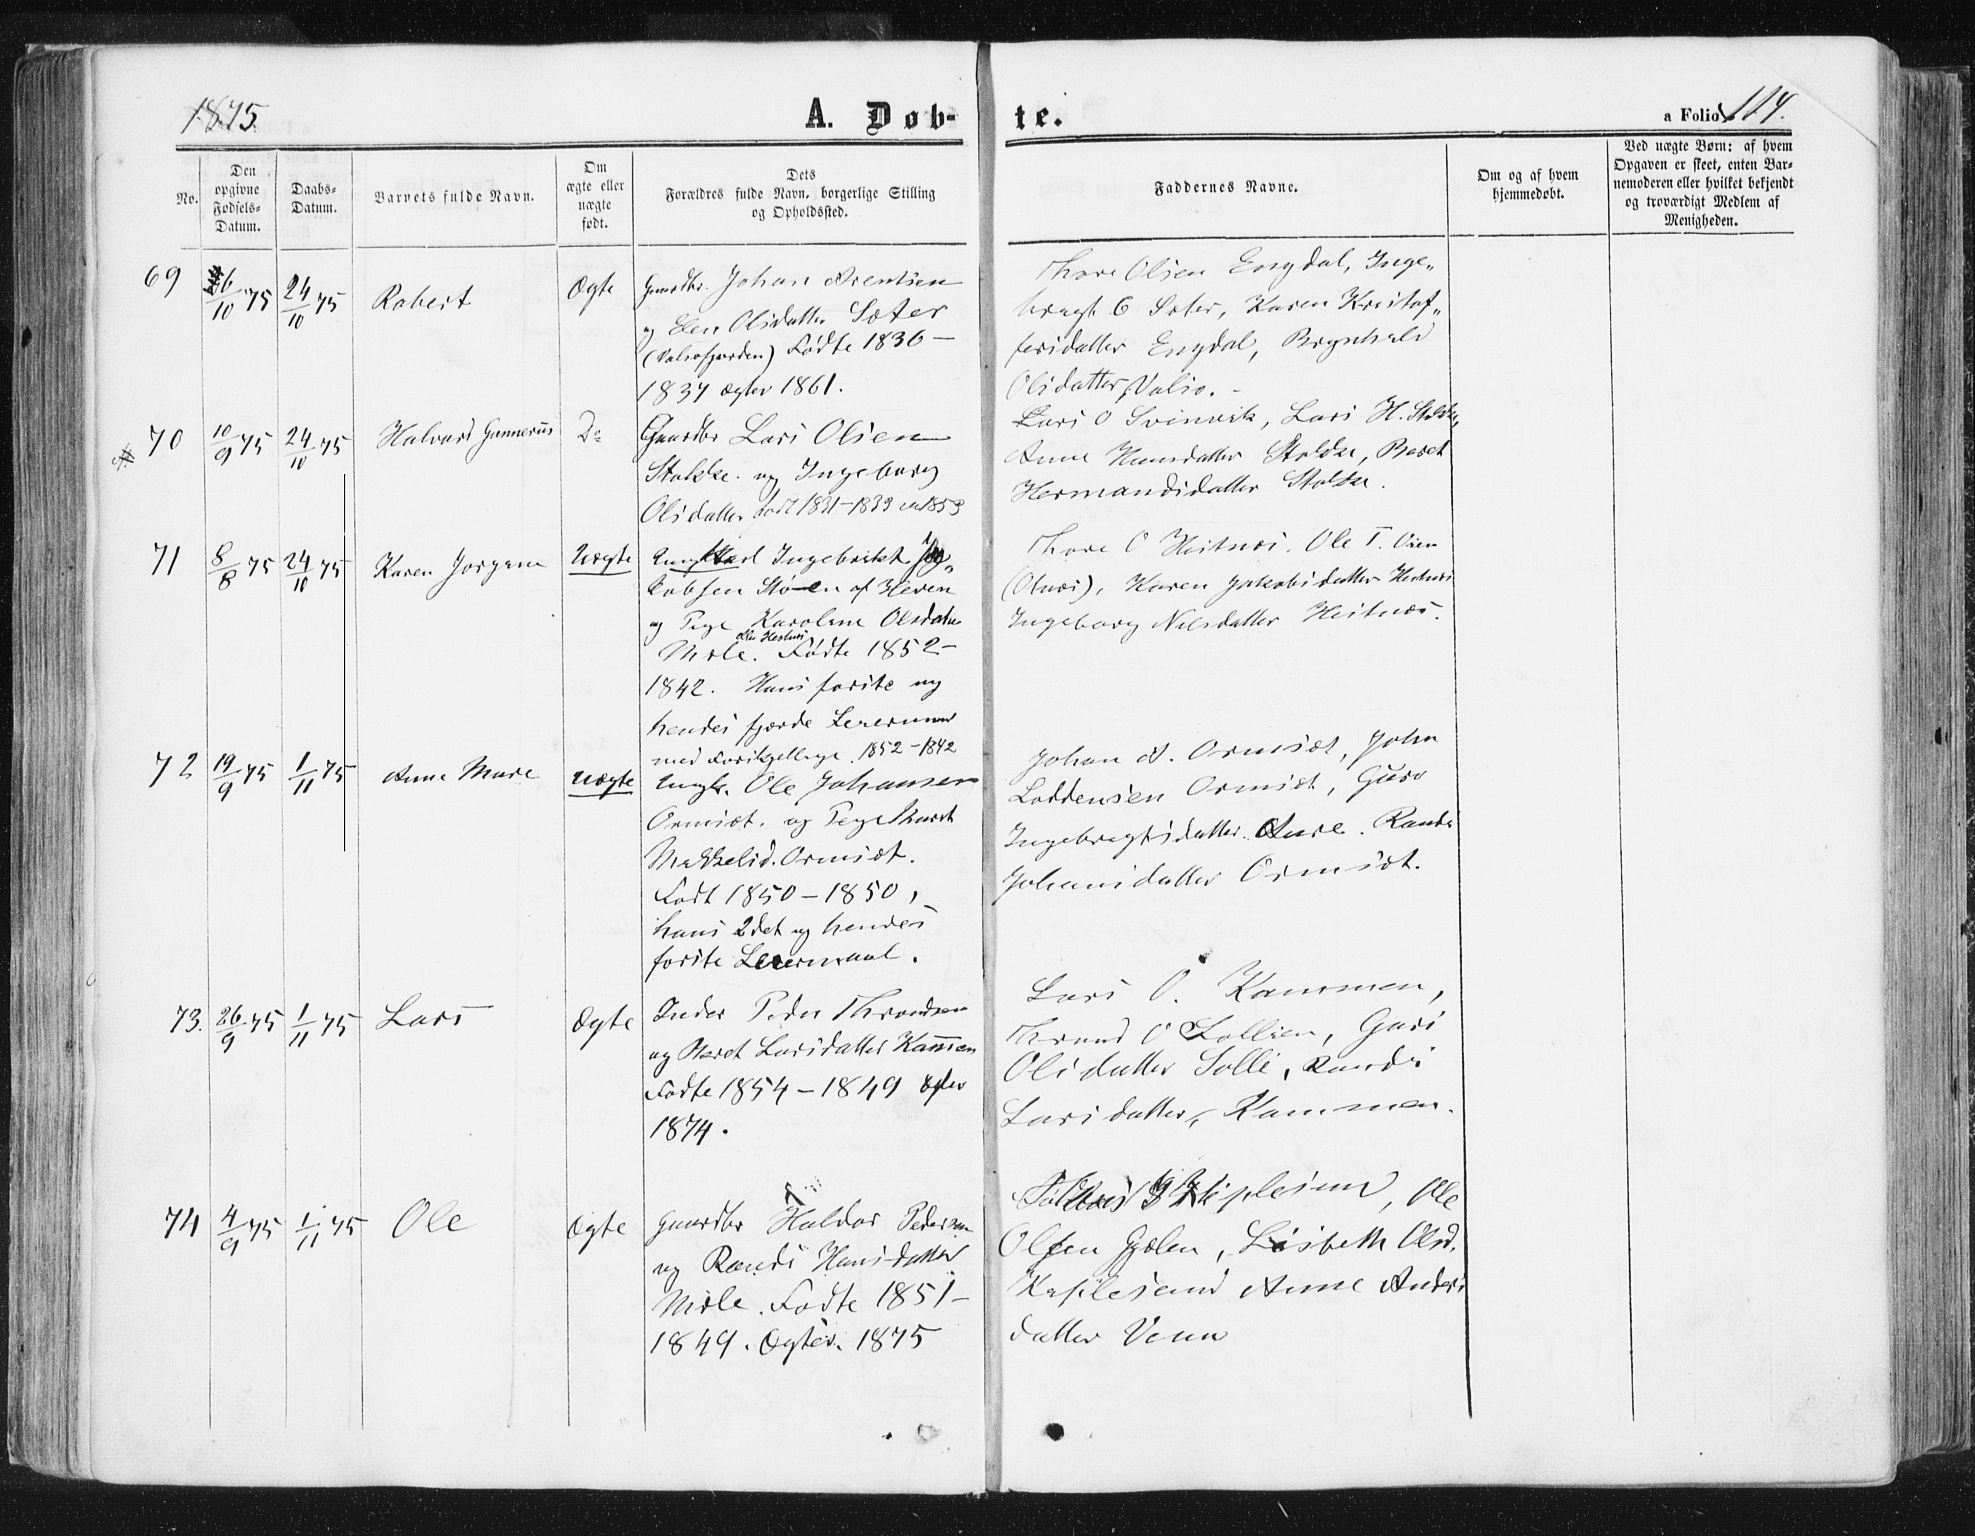 1875.
A. Døb-
te.
a Folio 114.
No.
Den
opgivne
Fødsels-
Datum.
Daabs-
Datum.
Barnets fulde Navn.
Om
ægte eller
uægte
født.
Dets
Forældres fulde Navn, borgerlige Stilling
og Opholdssted.
Faddernes Navne.
Om og af hvem
hjemmedøbt.
Ved uægte Børn: af hvem
Opgaven er skeet, enten Bar-
nemoderen eller hvilket bekjendt
og troværdigt Medlem af
Menigheden.
69
6/10 75
24/10 75
Robert
Ægte
Gaardbr. Johan Arentsen
og Elen Olsdatter Sæter
(Valsøfjorden) Fødte 1836 —
1837 ægtev 1861.
Thore Olsen Engdal, Inge„
bragt E Sæter, Karen Kristof„
fersdatter Engdal, Brynhild
Olsdatter, Valsø. –
70
10/9 75
24/10 75
Halvard Gunnerus
Do
Gaardbr Lars Olsen
Stokke og Ingeborg
Olsdatter født 1831–1833 1853
Lars O Svinvik, Lars H. Stokke,
Anne Hansdatter Stokke, Beret
Hermandsdatter Stokke.
71
8/8 75
24/10 75
Karen Jørgine
Uægte
Ungkarl Ingebrikt Ja„
kobsen Støen af Heven
og Pige Karoline Olsdatter
Mele. Fødte 1852–
1842. Hans første og
hendes fjerde Leiermaal
1852–1842
Thore O Hestnes, Ole T. Oien
(Otnes), Karen Jakobsdatter Hestnes
Ingeborg Nilsdatter Hestnes.
72
19/9 75
1/11 75
Anne Mare
Uægte
Ungk. Ole Johansen
Ormset. og Pige Maret
Mikkelsd. Ormset.
Født 1850–1850,
hans 2det og hendes
første Leiermaal.
Johan A. Ormset, John
Loddensen Ormset, Guro
Ingebragtsdatter Aure. Randi
Johansdatter Ormset.
73.
26/9 75
1/11 75
Lars
Ægte
Inder Peder Throndsen
og Beret Larsdatter Kammen
Fødte 1854–1849 ægtev
1874.
Lars O. Kammen,
Thrond O Sollien, Guri
Olsdatter Solli, Randi
Larsdatter, Kammen.
74
4/9 75
1/11 75
Ole
Ægte
Gaardbr Haldor Pedersen
og Randi Hansdatter
Mele. Fødte 1851–
1849. Ægtev. 1875
Ole
Olsen Gjølen, Lisbeth Olsd.
Anne Anders
datter Venn